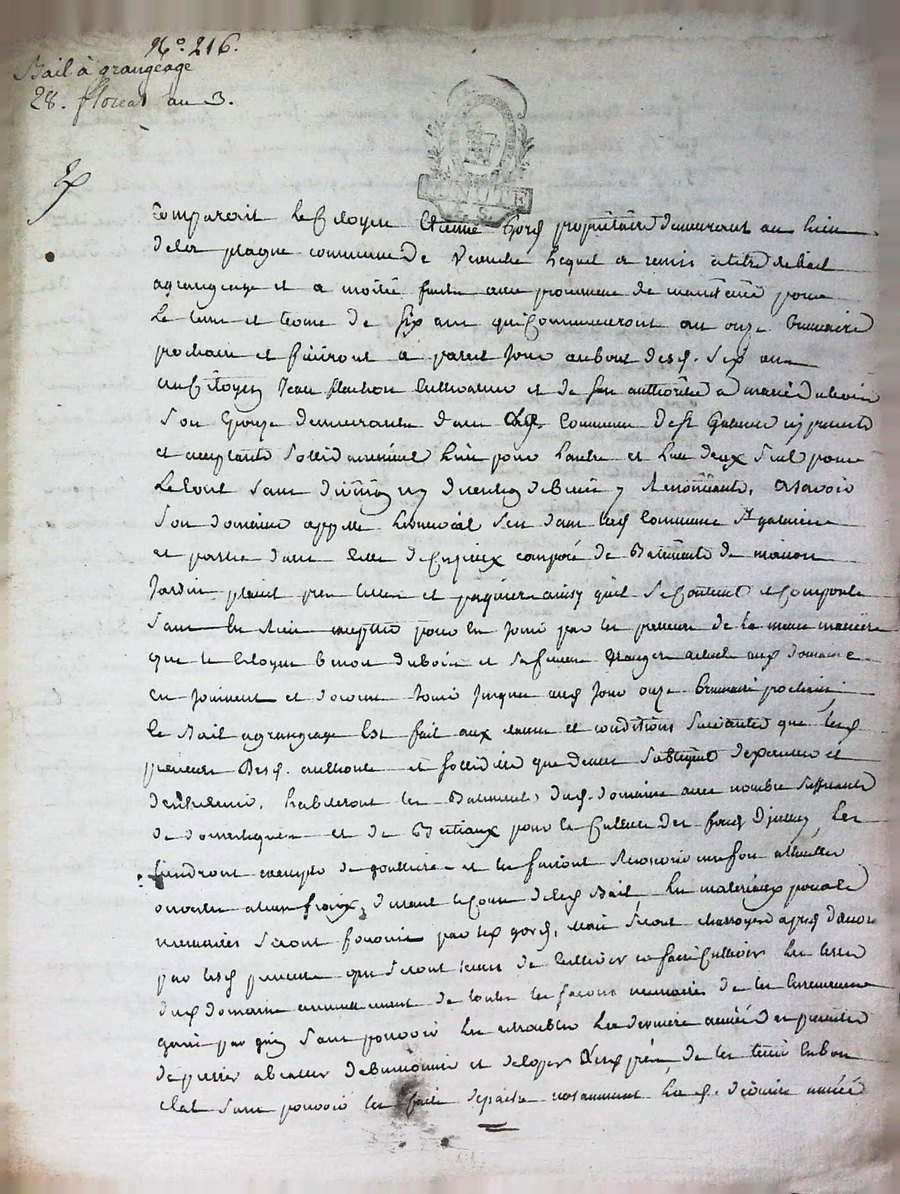 N° 216.
Bail à grangeage
28. floreal an 3.
MINUTE
Comparoit le Citoyen Etienne Gord propriétaire demeurant au lieu
dela plagne commune de Veauche lequel a remis atitre debail
agrangeage et a moitié fruits avec promesse de maintenir pour
le tems et terme de six ans qui Commenceront au onze brumaire
prochain et finiront a pareil jour aubout desd. six ans
au Citoyen Jean flachon Cultivateur et de son authorité a marie duboin
son Epouse demeurants dans commune de St Galmier icy presents
et acceptants sollidairement l'un pour l'autre et l'un deux seul pour
le tout sans division ny discution debiens y Renonceants, asavoir
son domaine appellé scis dans commune St galmier
et partie dans celle de Cuzieux composé de Batiments de maison
Jardin prés terres et paquiers ainsy quil se Contient et Comporte
sans en rien excepter pour en jouir par les preneurs de la meme manière
que le Citoyen benoit duboin et sa femme granger actuels aud. domaine
en jouissent et doivent jouir jusque aud. jour onze brumaire prochain
le Bail agrangeage Est fait aux clauses et conditions suivantes que les
preneurs desd. authorité et sollidité que dessus
habiteront les Batiments dud. domaine avec nombre suffisants
de domestiques et de Bestiaux pour la Culture des fonds dyceluy, les
tiendront exempts de gouttieres et les feront
ouvriers aleurs fraix, durant le Cours dud. Bail, les materiaux pour ce
necessaires seront fournis par led. gord, mais seront charroyés
par lesd. preneurs qui seront tenus de Cultiver et faire Cultiver les terres
dud. domaine annuellement de toutes les façons necessaires de les
sans pouvoir les la derniere année du present
et deloger des prés, de les tenir en bon
etat sans pouvoir les faire depaitre notamment la d. derniere année